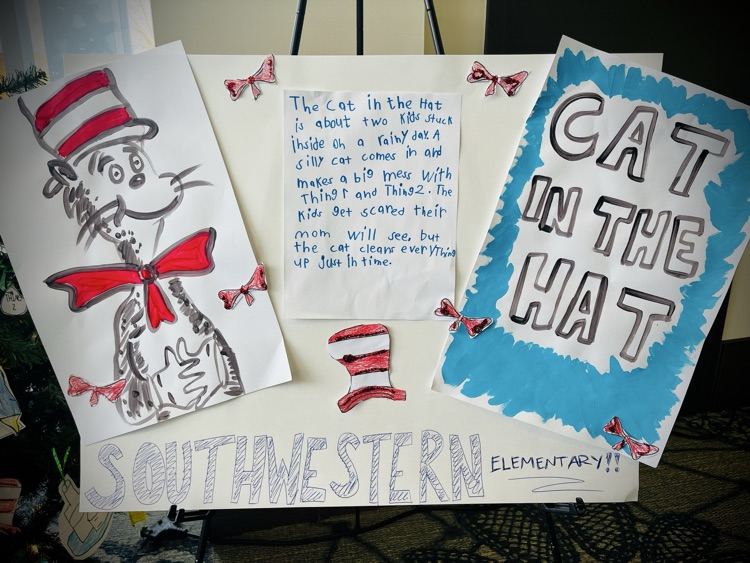 The Cat in the Hat
is about two kids stuck
inside on a rainy day. A
silly cat comes in and
makes a big mess with
Thing 1 and Thing 2. The
kids get scared their
mom will see, but
the cat cleans everything
up just in time.
CAT
IN THE
HAT
SOUTHWESTERN ELEMENTARY!!